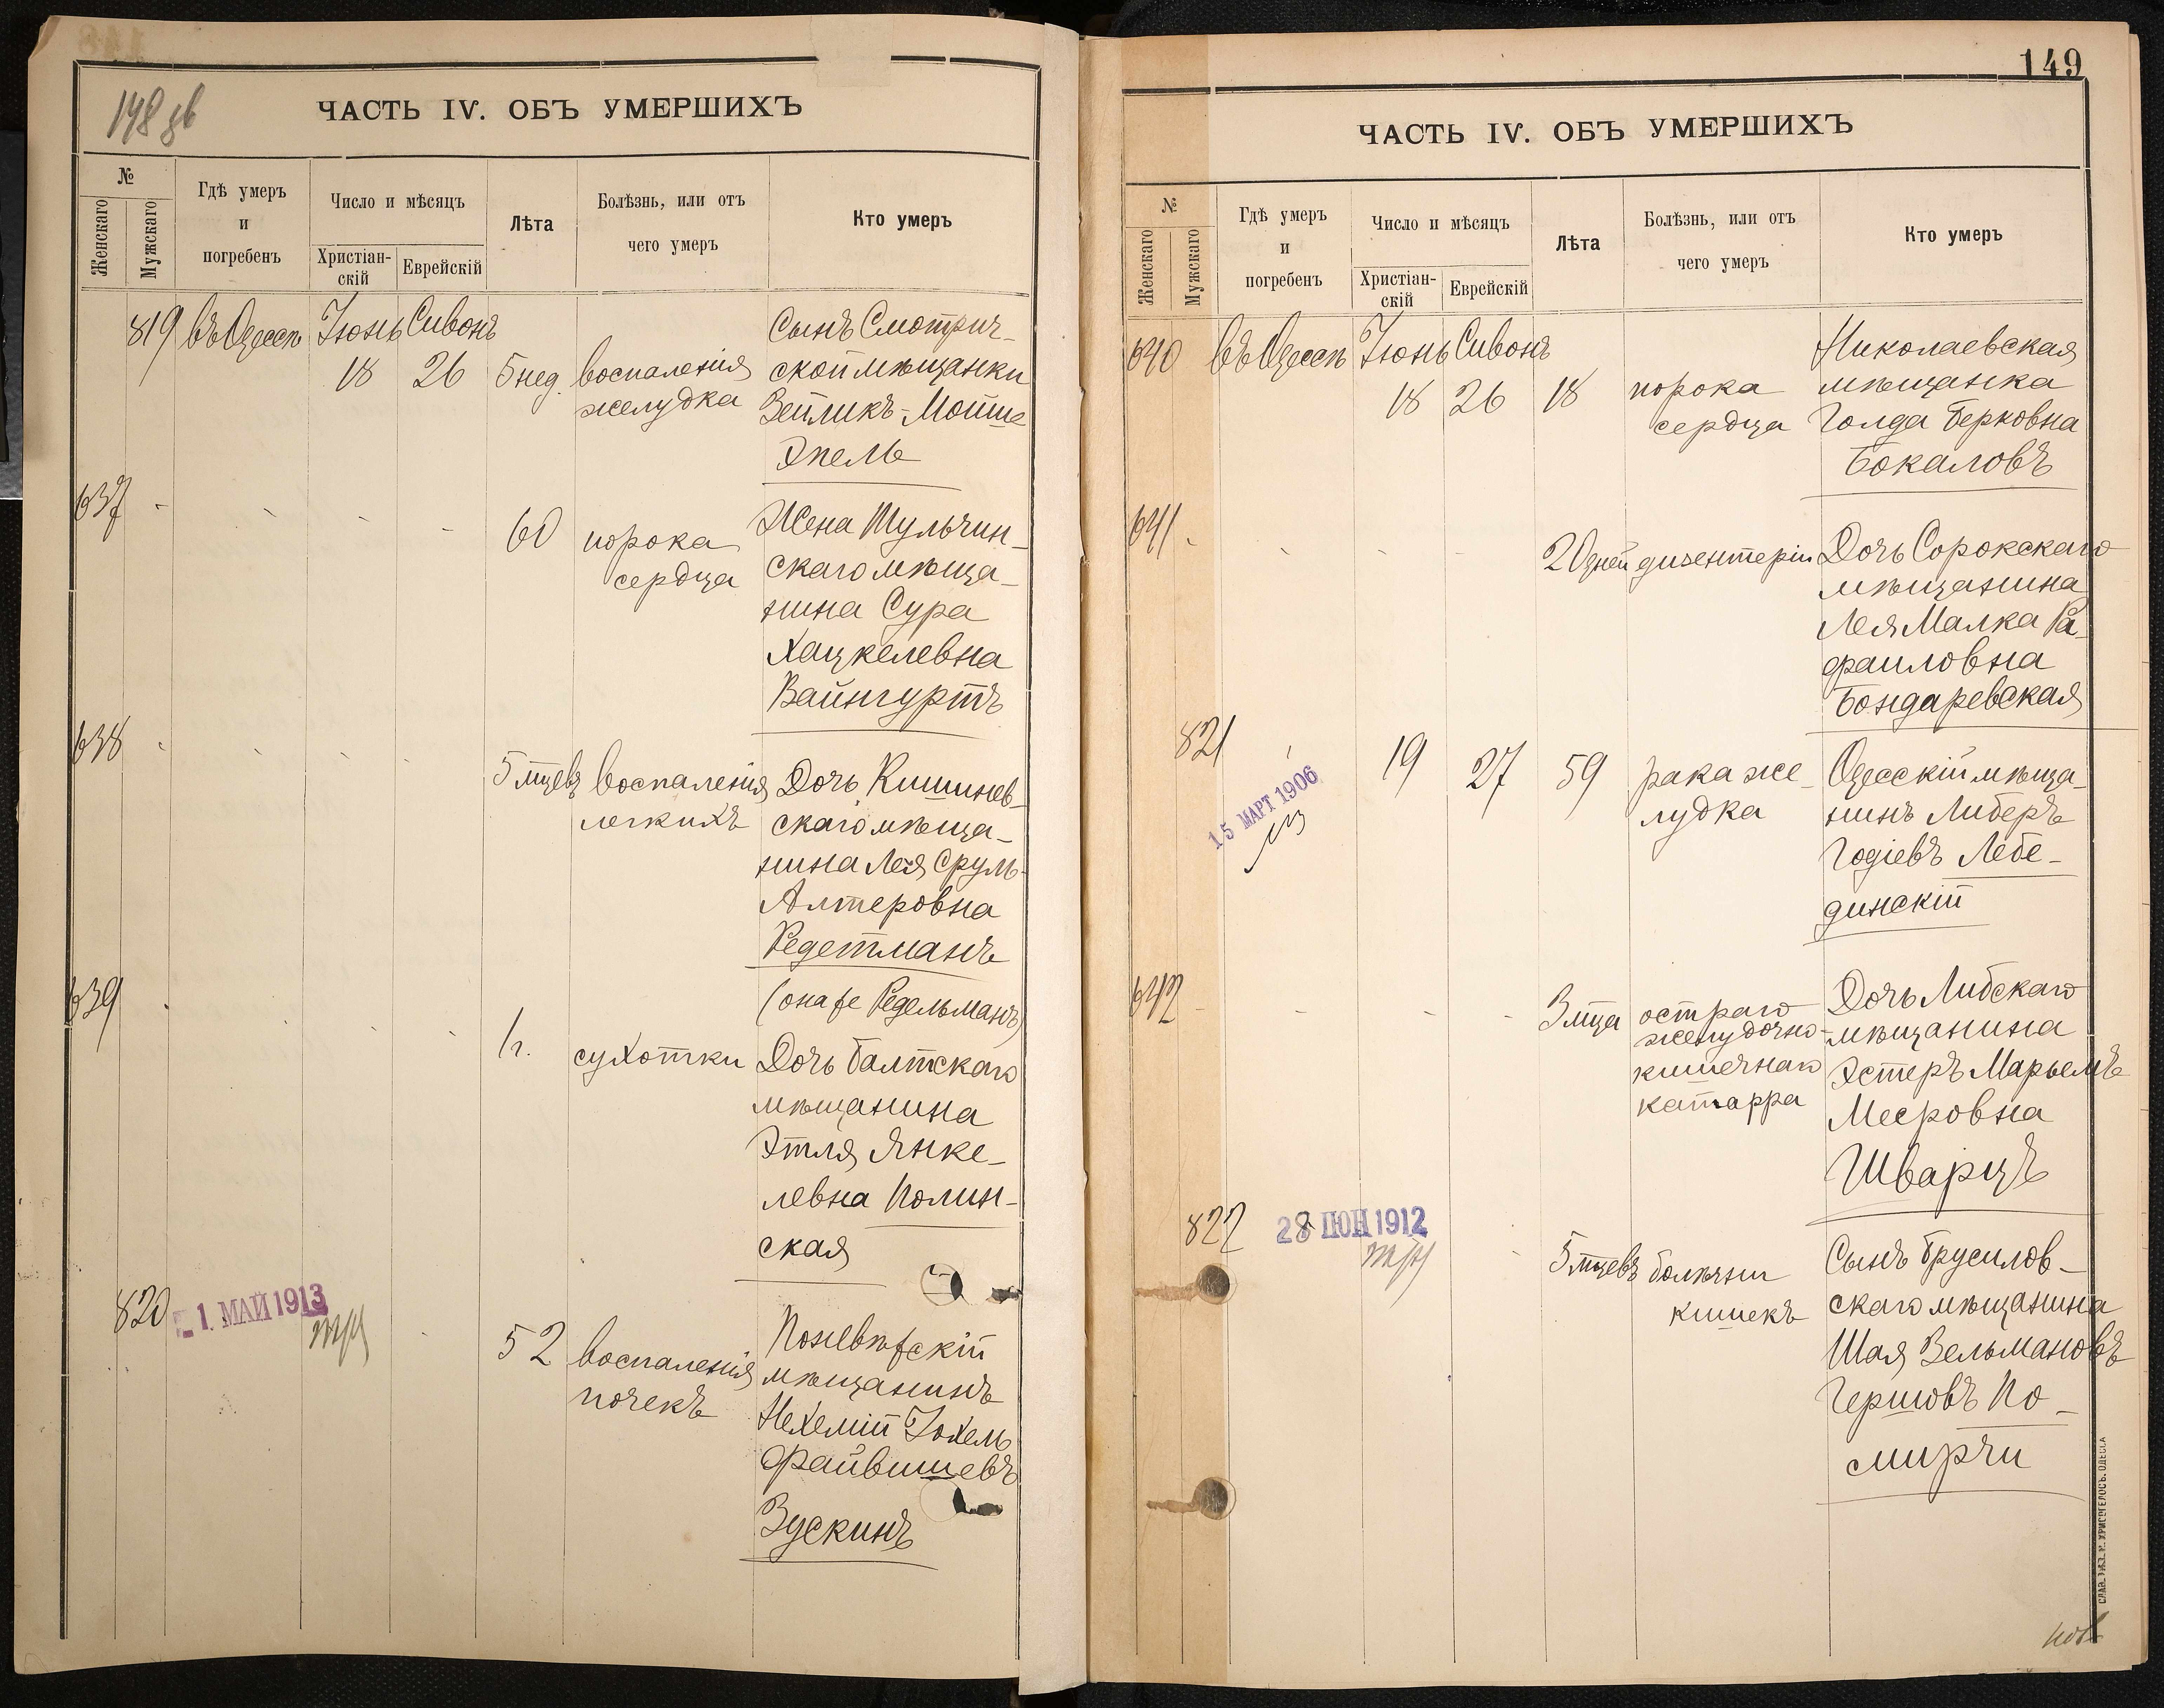 148 зв
ЧАСТЬ IV. ОБЪ УМЕРШИХЪ
№
Женскаго
Мужскаго
Гдѣ умеръ
и
погребенъ
Число и мѣсяцъ
Христіан-
скій
Еврейскій
Лѣта
Болѣзнь, или отъ
чего умеръ
Кто умеръ
819 въ Одессѣ Іюнь Сивонъ
18 26 5 нед. воспаленія
желудка
Сынъ Смотрич-
ской мѣщанки
Зейликъ-Мойше
Эпель
637
60 порока
сердца
Жена Тульчин-
скаго мѣща-
нина Сура
Хацкелевна
Вайнгуртъ
638
5 мцевъ воспаленія
легкихъ
Дочь Кишинев-
скаго мѣща-
нина Лея Сруль-
Алтеровна
Редетманъ
(она же Редельманъ)
639
1 г. сухотки
Дочь Балтскаго
мѣщанина
Этля Янке-
левна Полин-
ская
820
1. МАЙ 1913
52 воспаленія
почекъ
Поневѣжскій
мѣщанинъ
Нехемій Іохель
Файвишевъ
Зускинъ
149
ЧАСТЬ IV. ОБЪ УМЕРШИХЪ
№
Женскаго
Мужскаго
Гдѣ умеръ
и
погребенъ
Число и мѣсяцъ
Христіан-
скій
Еврейскій
Лѣта
Болѣзнь, или отъ
чего умеръ
Кто умеръ
640 въ Одессѣ Іюнь Сивонъ
18 26 18 порока
сердца
Николаевская
мѣщанка
Голда Берковна
Бокаловъ
641
20 дней дизентеріи
Дочь Сорокскаго
мѣщанина
Лея Малка Ра-
фаиловна
Бондаревская
821
15 МАРТ 1906
19 27 59 рака же-
лудка
Одесскій мѣща-
нинъ Либеръ
Годіевъ Лебе-
динскій
642
3 мца остраго
желудочно-
кишечнаго
катарра
Дочь Либскаго
мѣщанина
Эстеръ Марьемъ
Мееровна
Шварцъ
822
28 ІЮН 1912
5 мцевъ болѣзни
кишекъ
Сынъ Брусилов-
скаго мѣщанина
Шая Зельмановъ
Гершовъ По-
мирчи
СЛАВ. ТИП. Н. ХРИСОГЕЛОСЪ, ОДЕССА